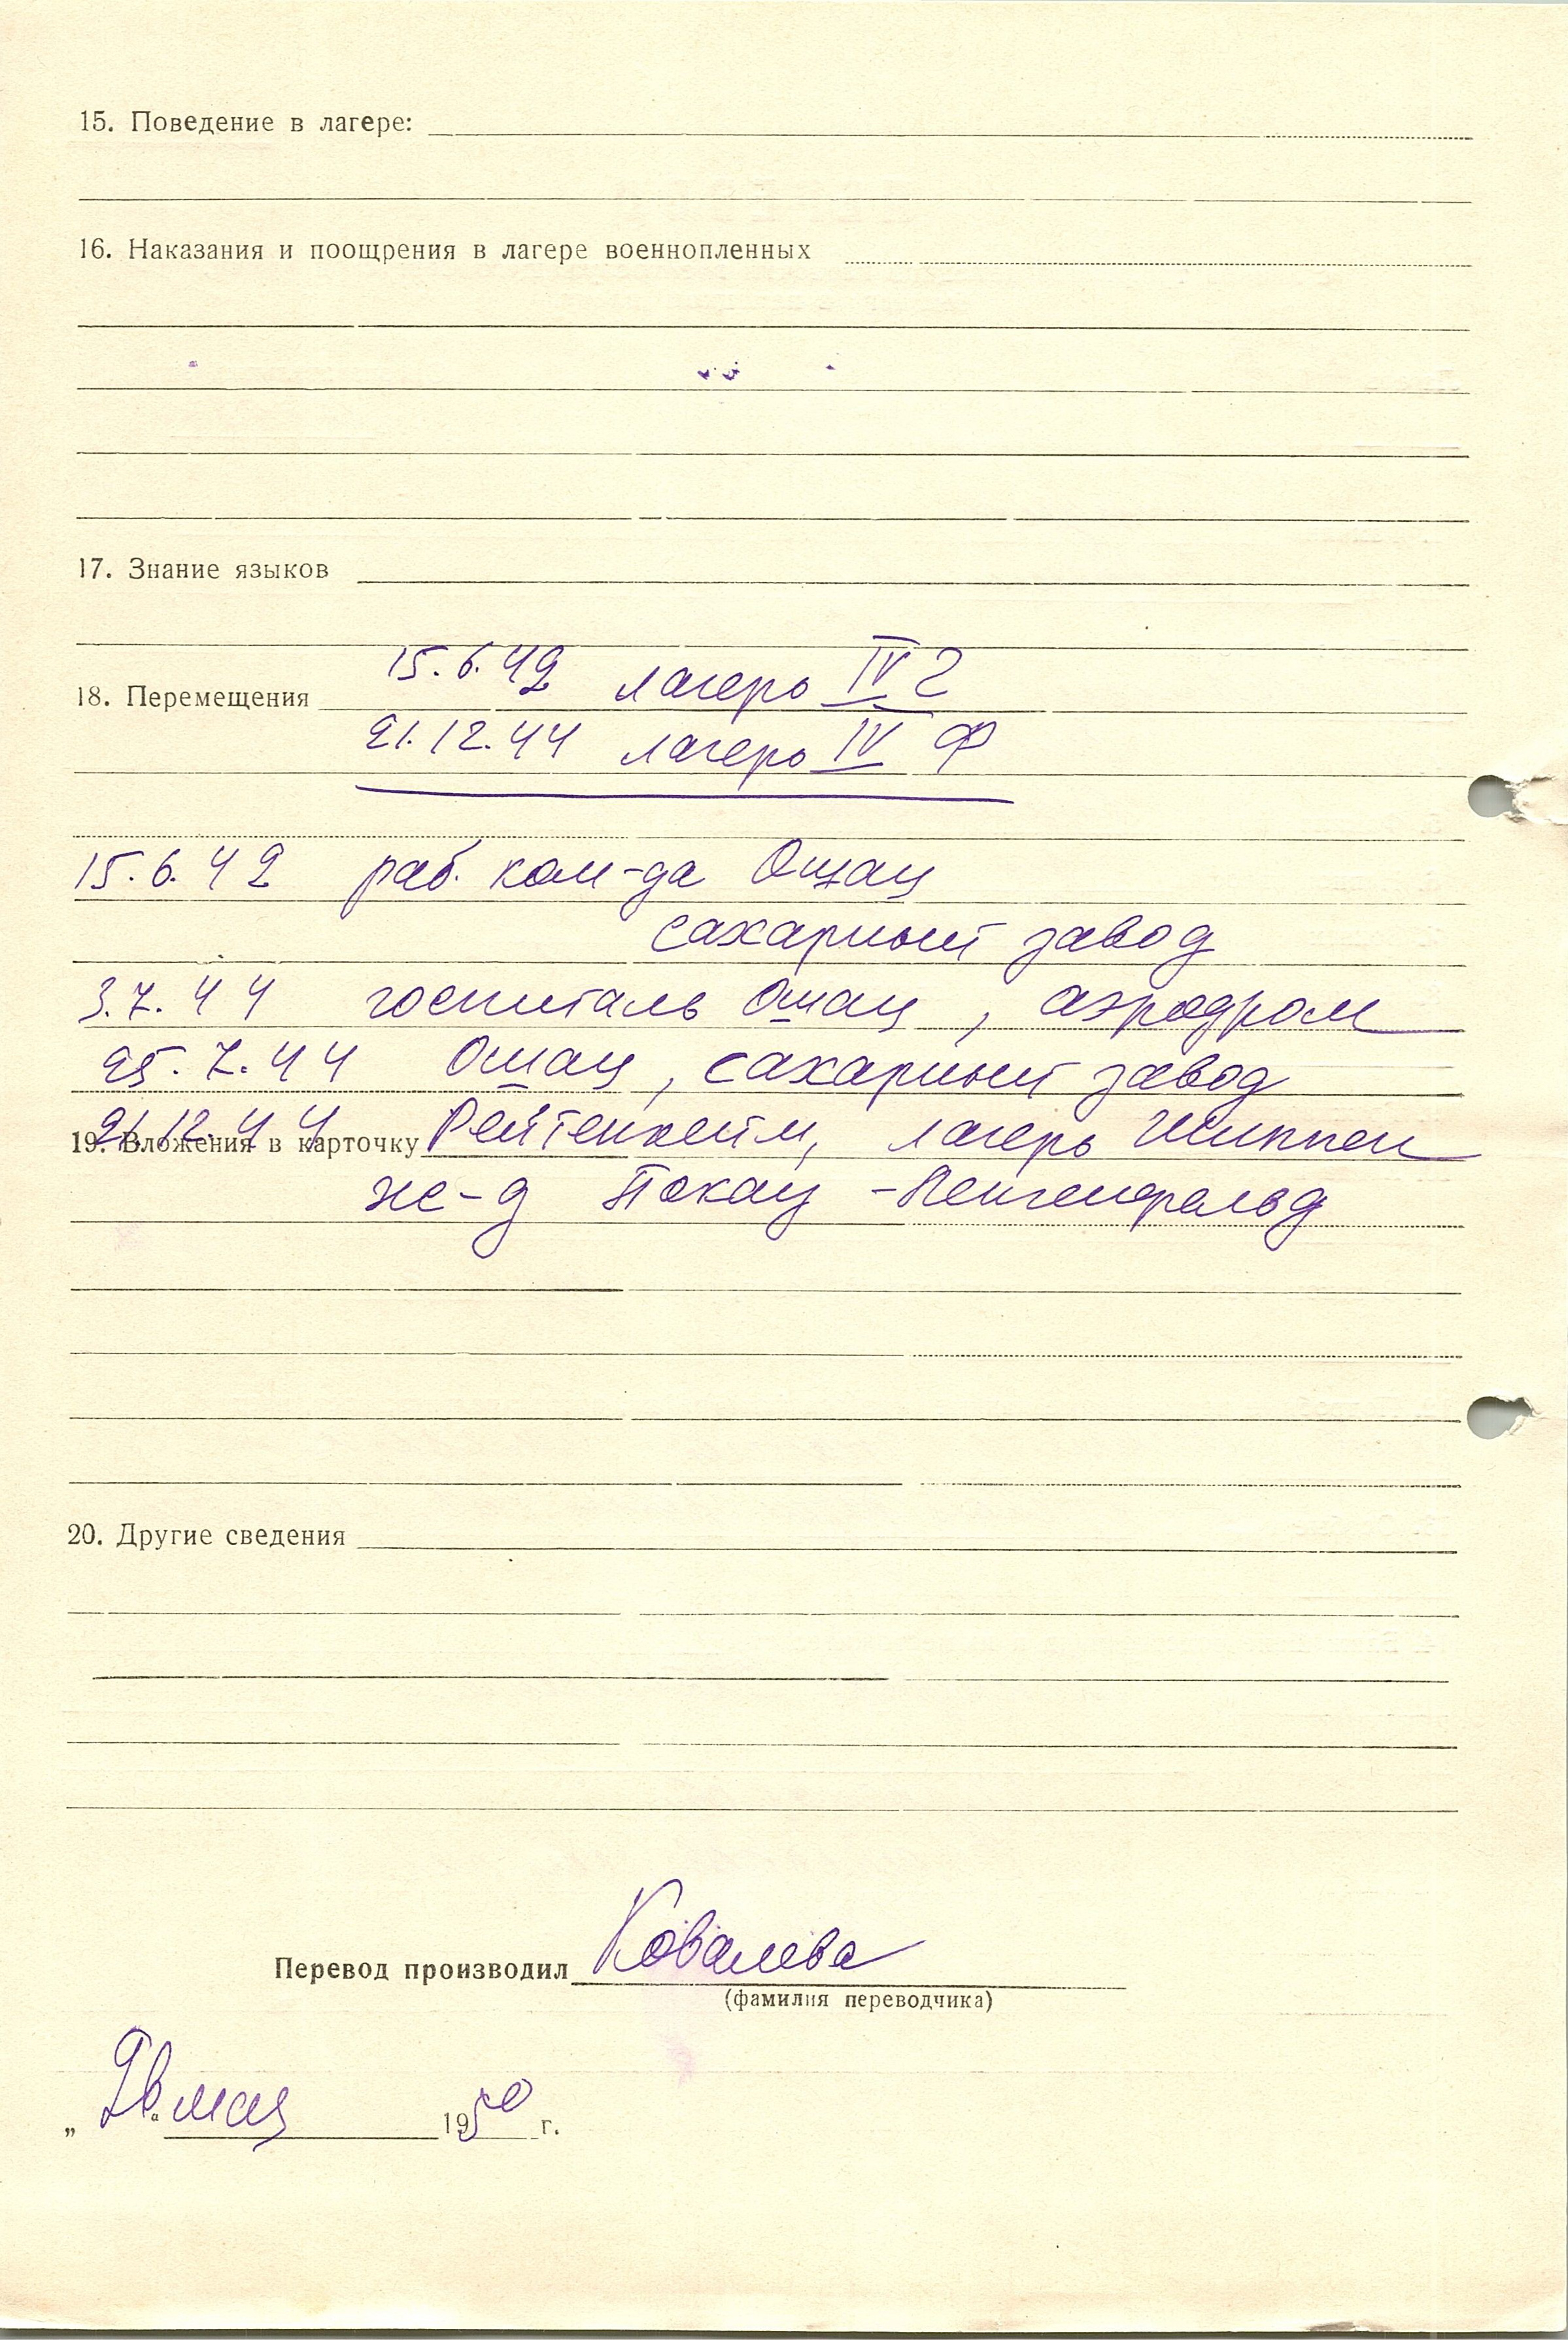 15. Поведение в лагере:
16. Наказания и поощрения в лагере военнопленных
17. Знание языков
15.6.42 лагерь IV Г
18. Перемещения
21.12.44 лагерь IV Ф
15.6.42 раб. ком-да Ошац
сахарный завод
3.7.44 госпиталь Ошац, аэродром
25.7.44 Ошац, сахарный завод
21.12.44 Рейтенхейм, лагерь Шиппен
19. Вложения в карточку
ж-д Покау - Ленгефельд
20. Другие сведения
Перевод производил Ковалева
(фамилия переводчика)
„26“ мая 1950 г.